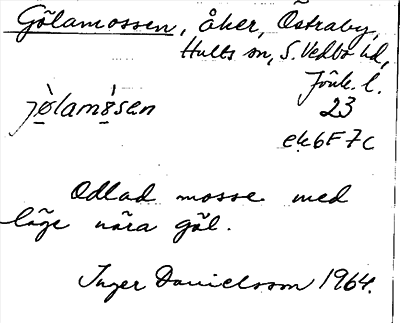 Gölamossen, åker, Östraby,
Hults sn, S. Vedbo hd,
Jönk. l.
jø̀lamòsen 23
ek 6F7c
Odlad mosse med
läge nära göl.
Inger Danielsson 1964.